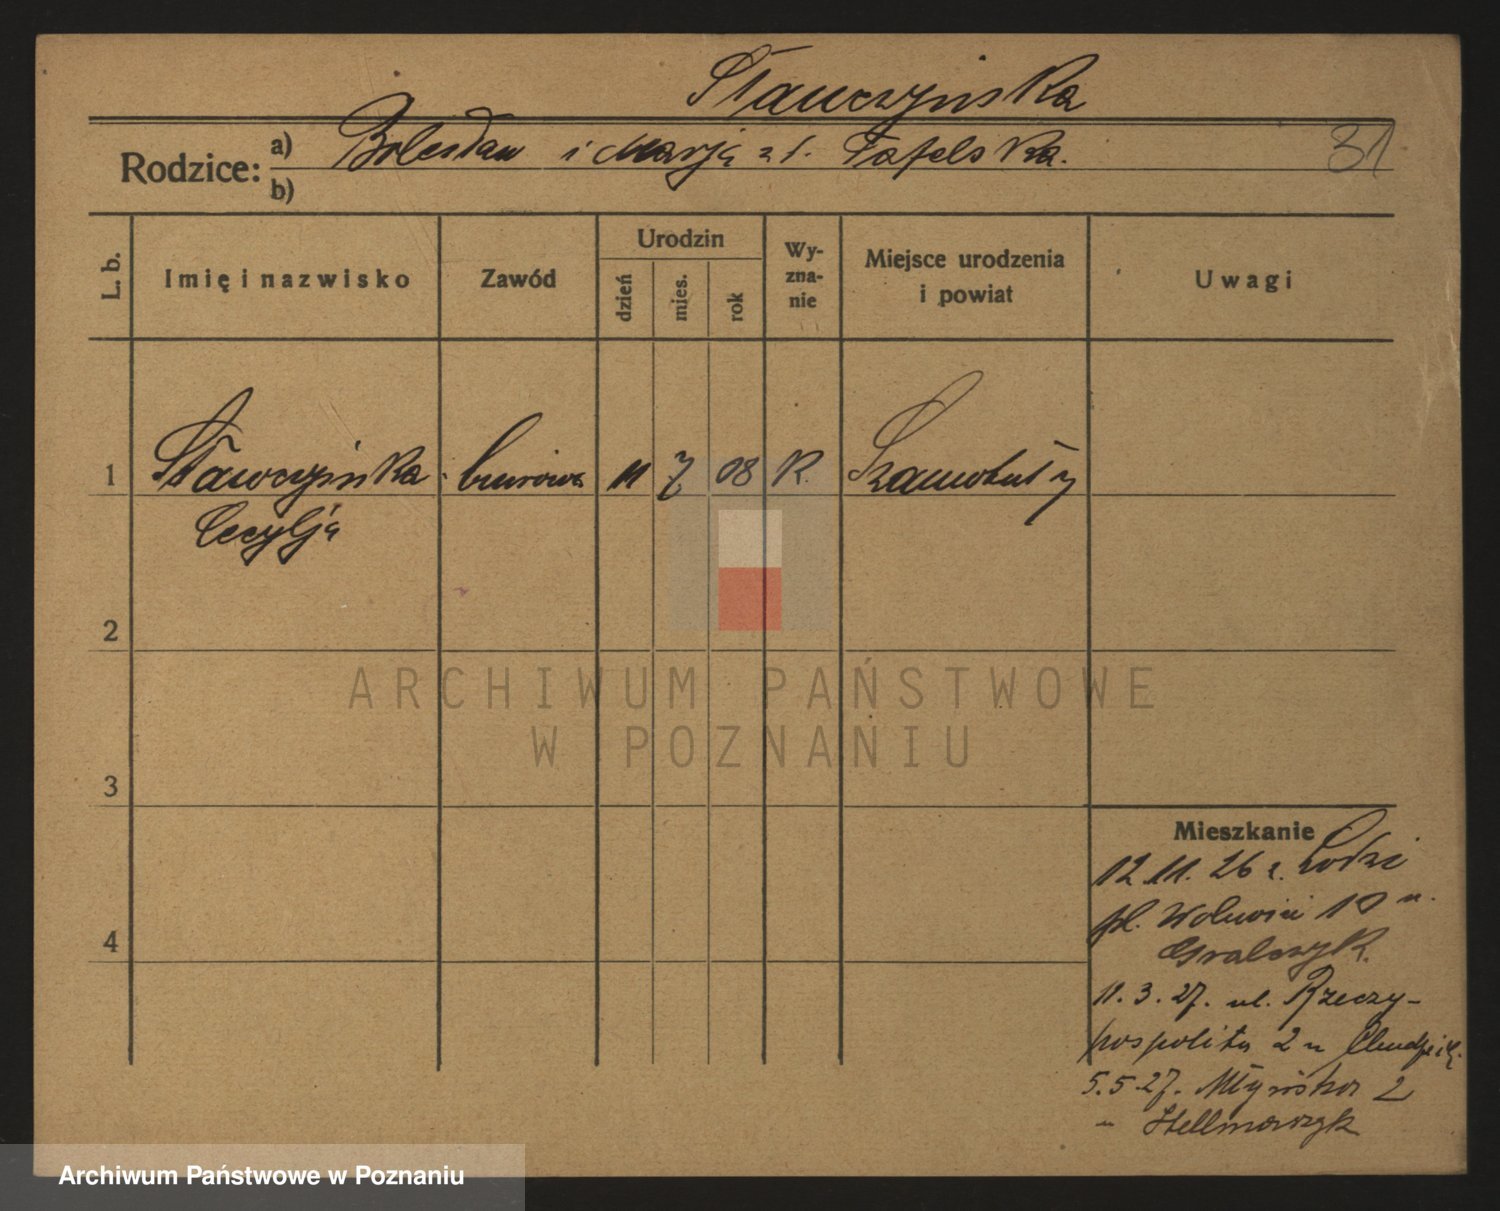 Stawczyńska
Rodzice: a) Bolesław i Marja z d. Tafelska.
b)
31
L. b.
Imię i nazwisko
Zawód
Urodzin
dzień
mies.
rok
Wy-
zna-
nie
Miejsce urodzenia
i powiat
Uwagi
1 Stawczyńska biurowa 11 7 08 R. Szamotuły
Cecylja
2
3
4
Mieszkanie
12.11.26 z Łodzi
pl. Wolności 10 u.
Gralczyk.
11.3.27. ul. Rzeczy-
pospolita 2 u
5.5.27. Młyńska 2
u
ARCHIWUM PAŃSTWOWE
W POZNANIU
Archiwum Państwowe w Poznaniu